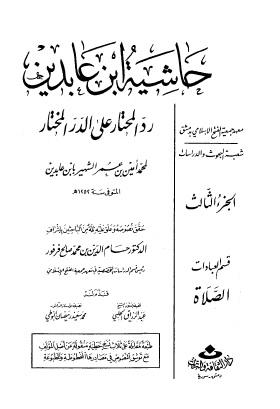 حاشية ابن عابدين
رد المحتار على الدر المختار
لمحمد أمين بن عمر الشهير بابن عابدين
المتوفى سنة ١٢٥٢هـ
حقق نصوصه وعلق عليه ثلة من الباحثين بإشراف
الدكتور حسام الدين بن محمد صالح فرفور
قدم له
عبد الرزاق الحلبي
محمد سعيد رمضان البوطي
معهد جمعية الفتح الإسلامي بدمشق
شعبة البحوث والدراسات
الجزء الثالث
قسم العبادات
الصلاة
دار الثقافة والتراث
دمشق - سورية